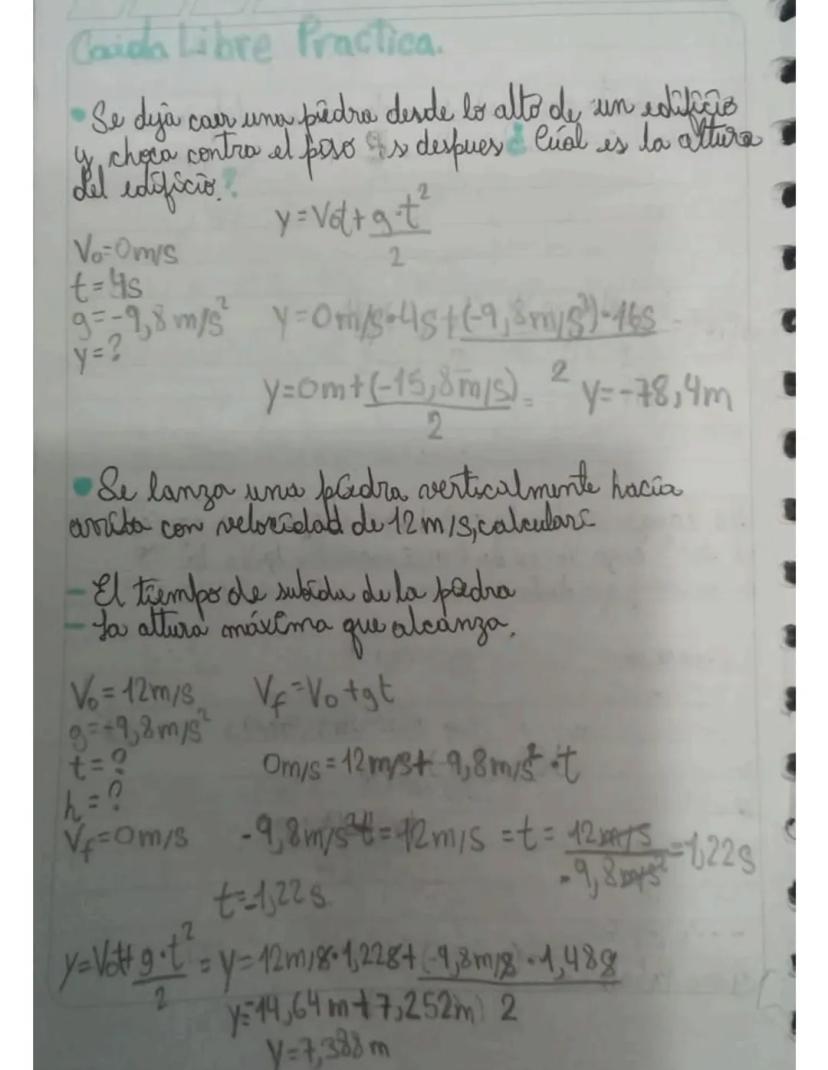 Caida Libre Practica.
• Se deja caer una piedra desde lo alto de un edificio
y choca contra el piso 4s despues ¿Cúal es la altura
del edificio?
y=Vot+g·t²/2
Vo=0m/s
t=4s
g=-9,8m/s²
y=?
y=0m/s·4s+(-9,8m/s²)·16s/2
y=0m+(-15,8m/s)/2= y=-78,4m
• Se lanza una piedra verticalmente hacia
arriba con velocidad de 12m/s, calcular:
- El tiempo de subida de la piedra
- La altura máxima que alcanza.
Vo=12m/s
g=-9,8m/s²
t=?
h=?
Vf=0m/s
Vf=Vo+gt
0m/s=12m/s+ 9,8m/s²·t
-9,8m/s²t=12m/s =t= 12m/s/-9,8m/s²=1,22s
t=1,22s
y=Vot+g·t²/2 = y=12m/s·1,22s+(-9,8m/s·1,48s/2
y=14,64m+7,252m
y=7,388m